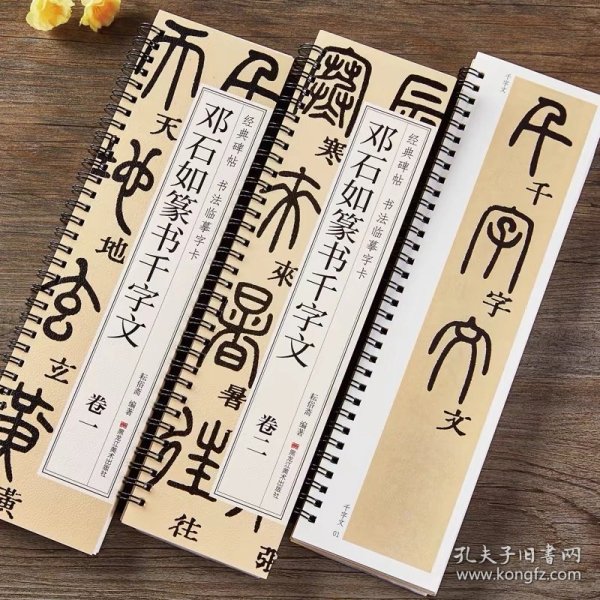 天
地
立
黄
经典碑帖 书法临摹字卡
邓石如篆书千字文
卷一
耘俗斋 编著
黑龙江美术出版社
寒
來
暑
往
张
经典碑帖 书法临摹字卡
邓石如篆书千字文
卷二
耘俗斋 编著
黑龙江美术出版社
千字文
千
字
文
千字文 01
孔夫子旧书网
www.kongfz.com